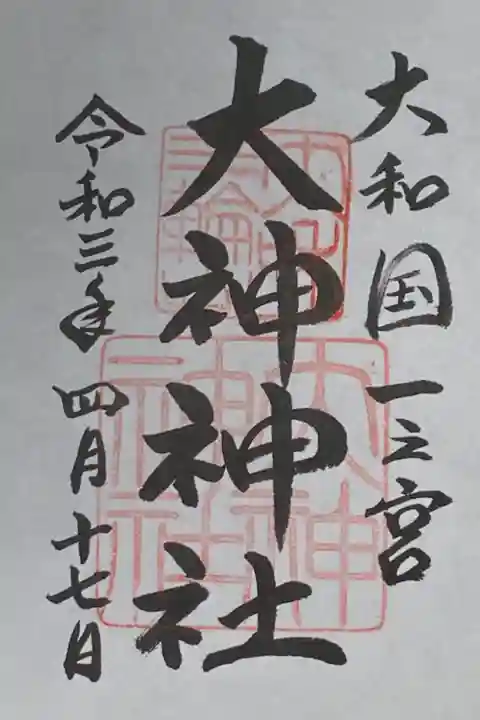 大和国一之宮
大神神社
令和三年四月十七日
三輪
大神神社